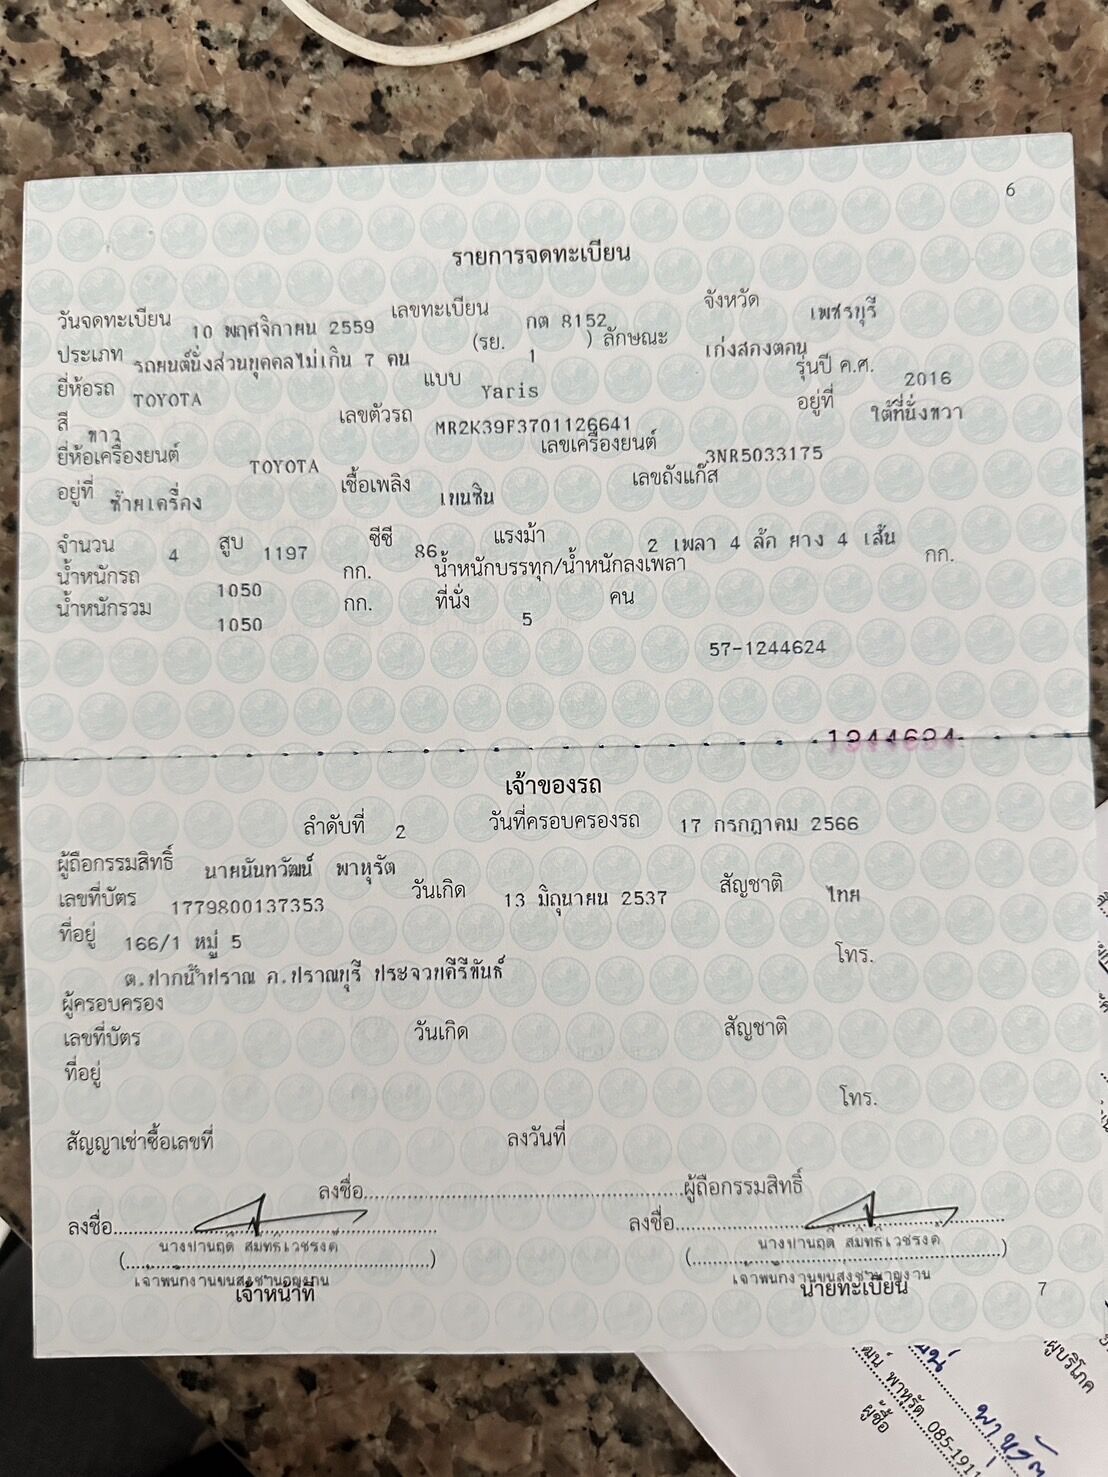 6
รายการจดทะเบียน
วันจดทะเบียน 10 พฤศจิกายน 2559 เลขทะเบียน กต 8152 จังหวัด เพชรบุรี
ประเภท รถยนต์นั่งส่วนบุคคลไม่เกิน 7 คน (รย. 1 ) ลักษณะ เก๋งสองตอน
ยี่ห้อรถ TOYOTA แบบ Yaris รุ่นปี ค.ศ. 2016
สี ขาว เลขตัวรถ MR2K39F3701126641 อยู่ที่ ใต้ที่นั่งขวา
ยี่ห้อเครื่องยนต์ TOYOTA เลขเครื่องยนต์ 3NR5033175
อยู่ที่ ซ้ายเครื่อง เชื้อเพลิง เบนซิน เลขถังแก๊ส
จำนวน 4 สูบ 1197 ซีซี 86 แรงม้า 2 เพลา 4 ล้อ ยาง 4 เส้น
น้ำหนักรถ 1050 กก. น้ำหนักบรรทุก/น้ำหนักลงเพลา กก.
น้ำหนักรวม 1050 กก. ที่นั่ง 5 คน
57-1244624
1244624
เจ้าของรถ
ลำดับที่ 2 วันที่ครอบครองรถ 17 กรกฎาคม 2566
ผู้ถือกรรมสิทธิ์ นายนันทวัฒน์ พาหุรัต
เลขที่บัตร 1779800137353 วันเกิด 13 มิถุนายน 2537 สัญชาติ ไทย
ที่อยู่ 166/1 หมู่ 5 โทร.
ต.ปากน้ำปราณ อ.ปราณบุรี ประจวบคีรีขันธ์
ผู้ครอบครอง
เลขที่บัตร วันเกิด สัญชาติ
ที่อยู่
โทร.
สัญญาเช่าซื้อเลขที่ ลงวันที่
ลงชื่อ ผู้ถือกรรมสิทธิ์
ลงชื่อ ลงชื่อ
เจ้าพนักงานขนส่งชำนาญงาน เจ้าพนักงานขนส่งชำนาญงาน
เจ้าหน้าที่ นายทะเบียน
7
ผู้บริโภค
พาหุรัต
พาหุรัต 085-1911
ผู้ซื้อ